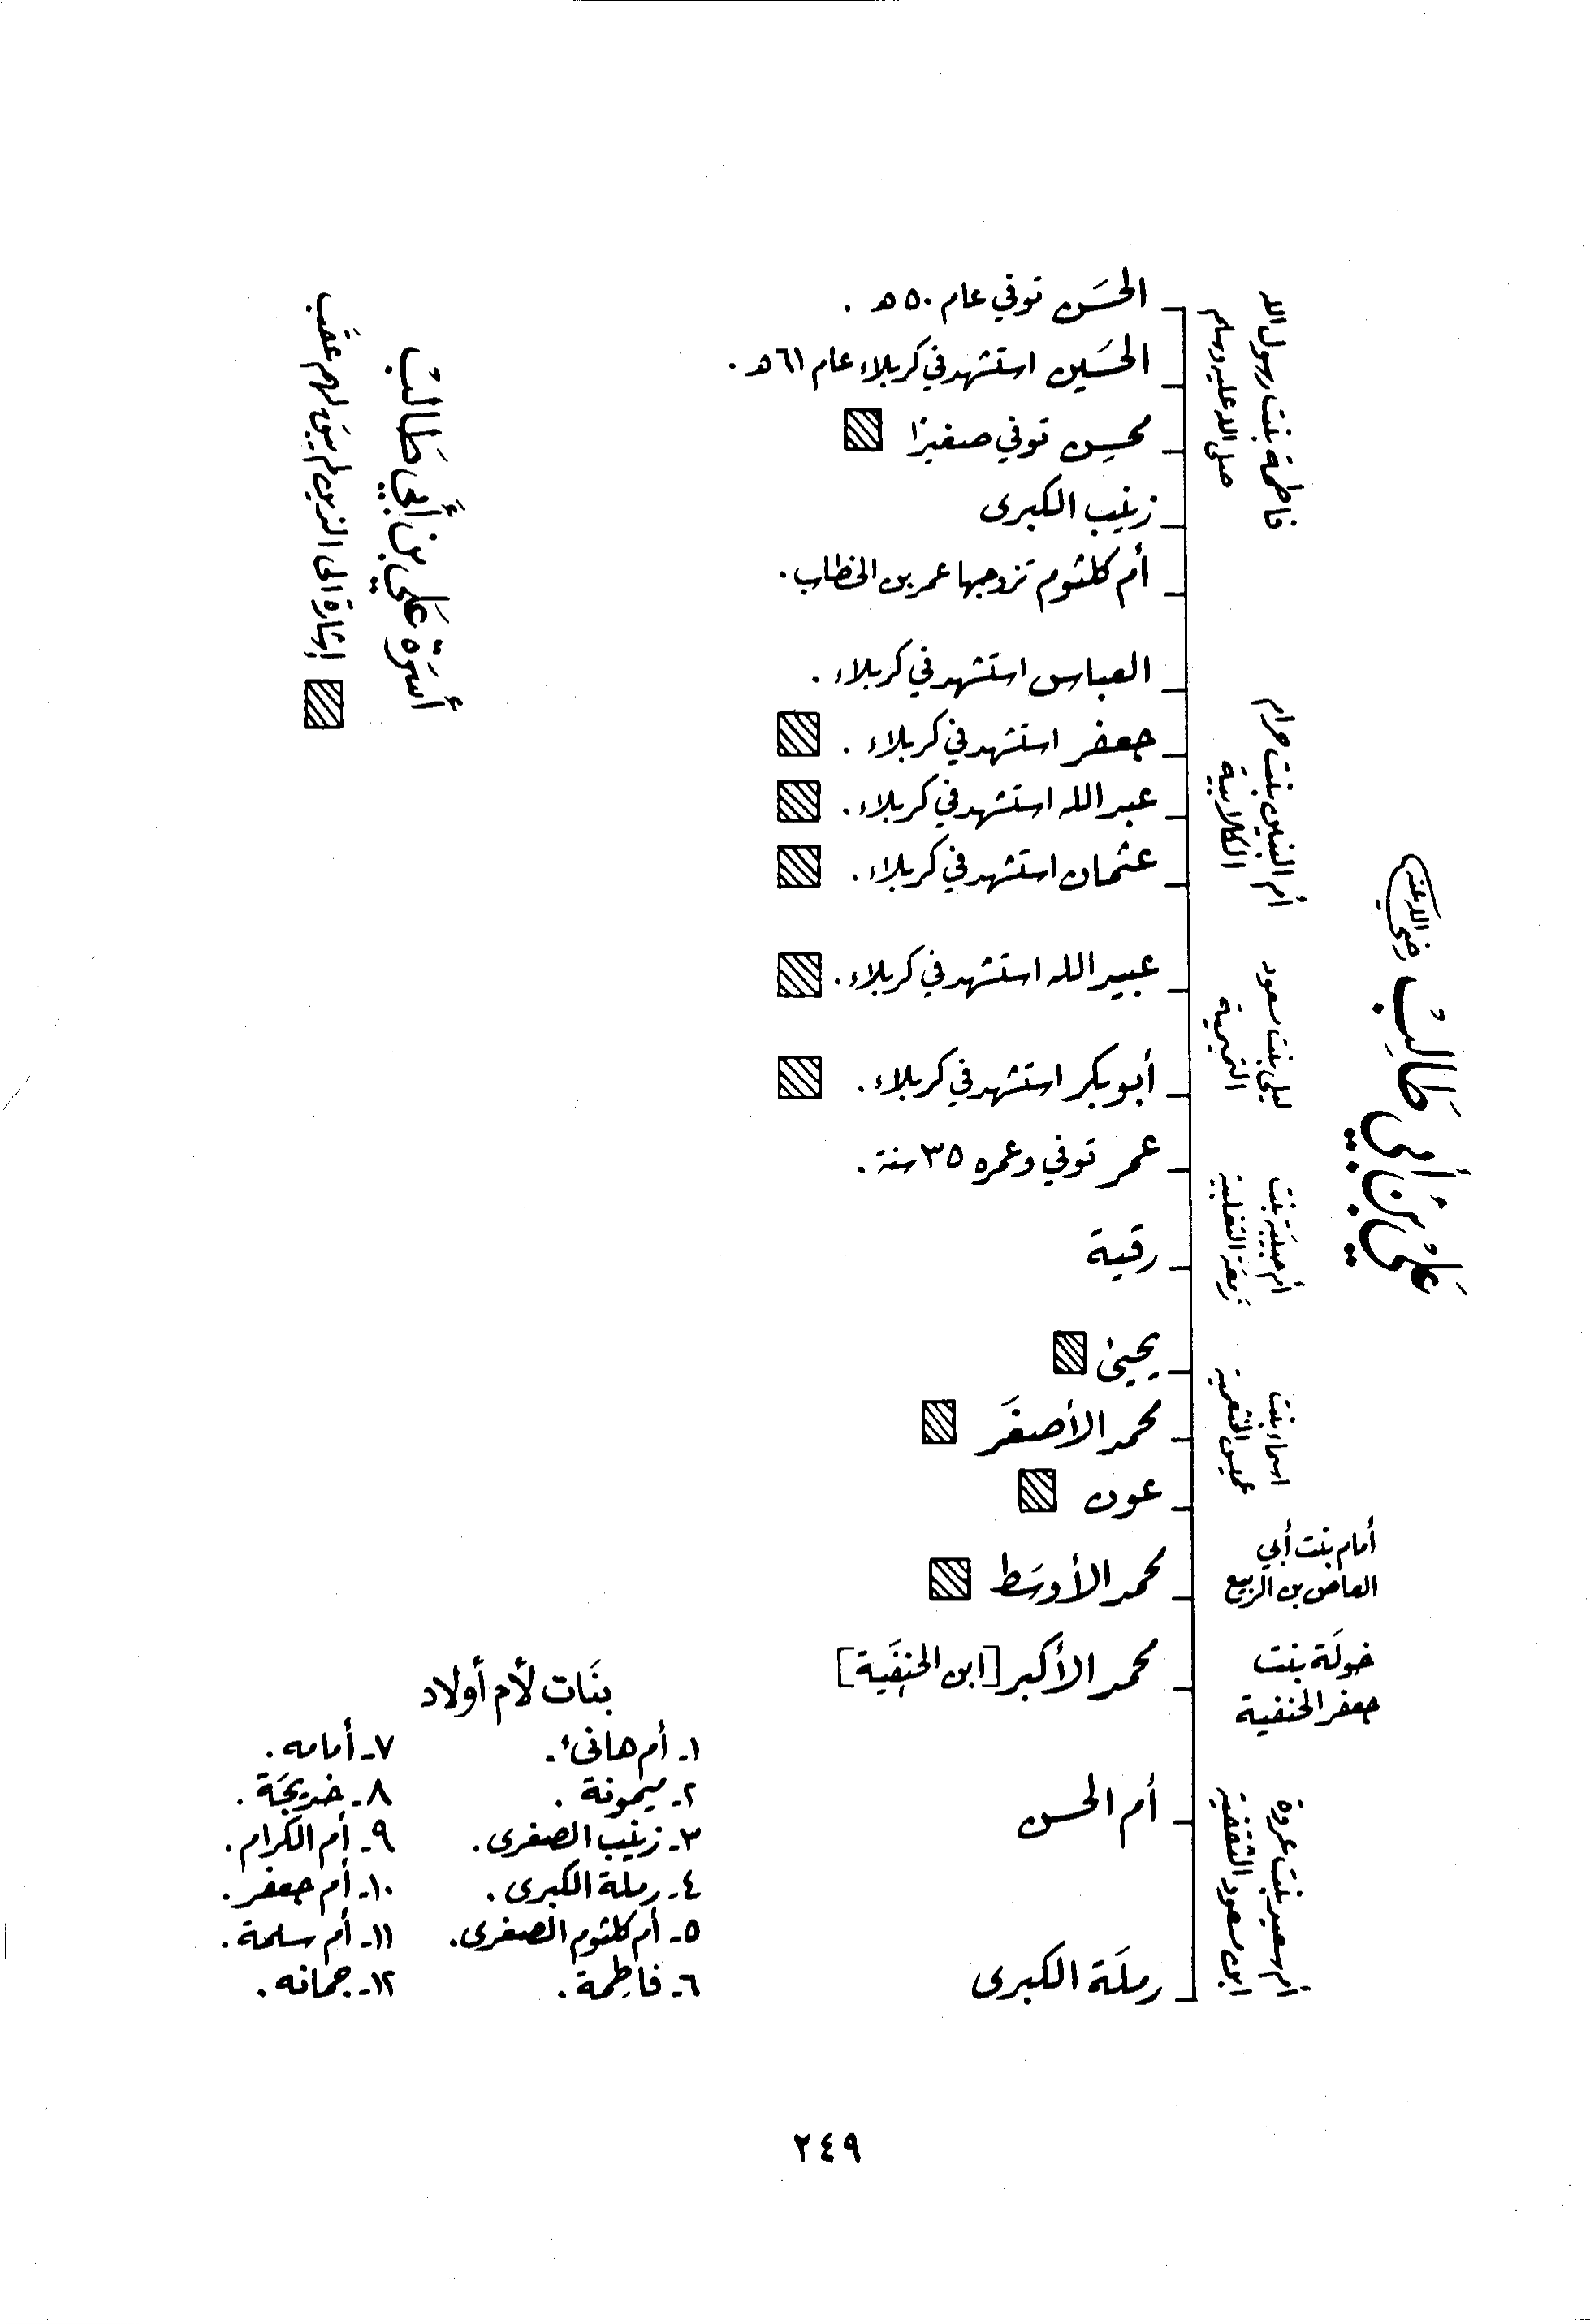 عَلي بن أَبي طَالِبْ رضي الله عنه
فاطمة بنت رسول الله
صلى الله عليه وسلم
الحسَن توفي عام ٥٠ هـ .
الحسَين استشهد في كربلاء عام ٦١ هـ .
محسِن توفي صغيرًا
زينب الكبرى
أم كلثوم تزوجها عمر بن الخطاب .
أم البنين بنت حرام
الكلابية
العباس استشهد في كربلاء .
جعفر استشهد في كربلاء .
عبد الله استشهد في كربلاء .
عثمان استشهد في كربلاء .
ليلى بنت سعود
التميمية
عبيد الله استشهد في كربلاء .
أبو بكر استشهد في كربلاء .
أم حبيبَة بنت
زمعَة التغلبية
عمر توفي وعمره ٣٥ سنة .
رقية
اسماء بنت
عميس الخثعمية
يحيىٰ
محمد الأصغَر
عون
أمام بنت أبي
العاص بن الربيع
محمد الأوسَط
خولَة بنت
جعفر الحنفية
محمد الأكبر [ ابن الحنفَية ]
أم سعيد بنت عروة
ابن مسعود الثقفية
أم الحسن
رملَة الكبرى
أُسَرة عَلي بن أَبي طَالبْ
إشارة الى الذين لم يبقَ لهم عقَب
بنَات لأم أولاد
١ـ أم هانىء .
٢ـ ميمونة .
٣ـ زينب الصغرى .
٤ـ رملة الكبرى .
٥ـ أم كلثوم الصغرى .
٦ـ فاطِمة .
٧ـ أمامه .
٨ـ خديجَة .
٩ـ أم الكرام .
١٠ـ أم جعفر .
١١ـ أم سلمة .
١٢ـ جمانه .
٢٤٩